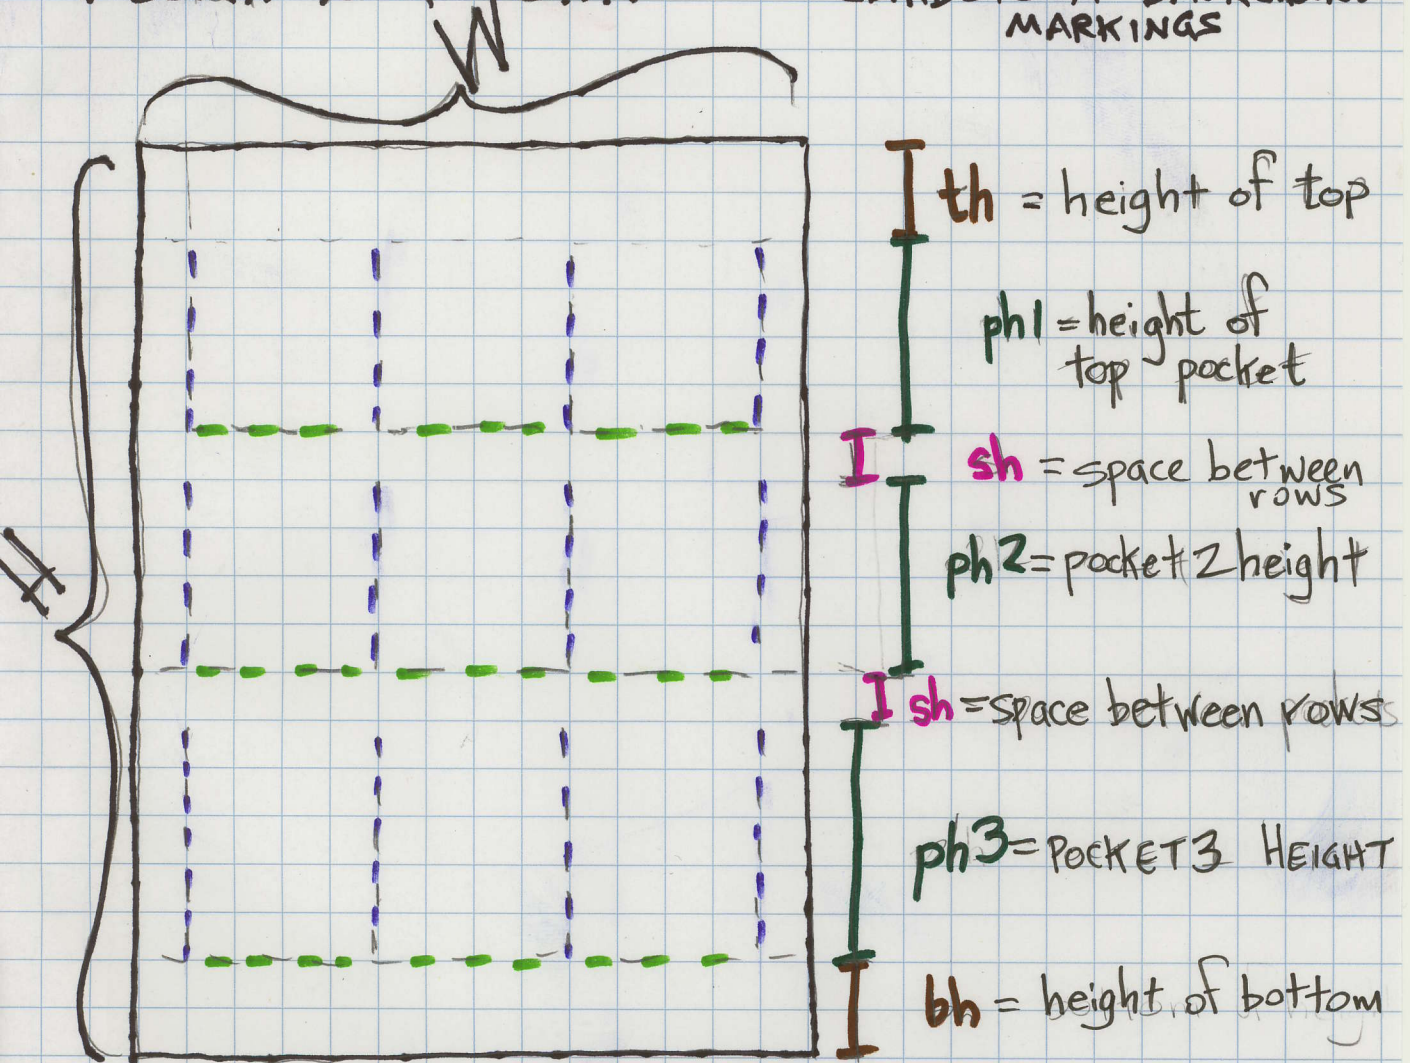 MARKINGS
W
th = height of top
ph1 = height of
top pocket
sh = space between
rows
ph2 = pocket 2 height
H
sh = space between rows
ph3 = POCKET 3 HEIGHT
bh = height of bottom